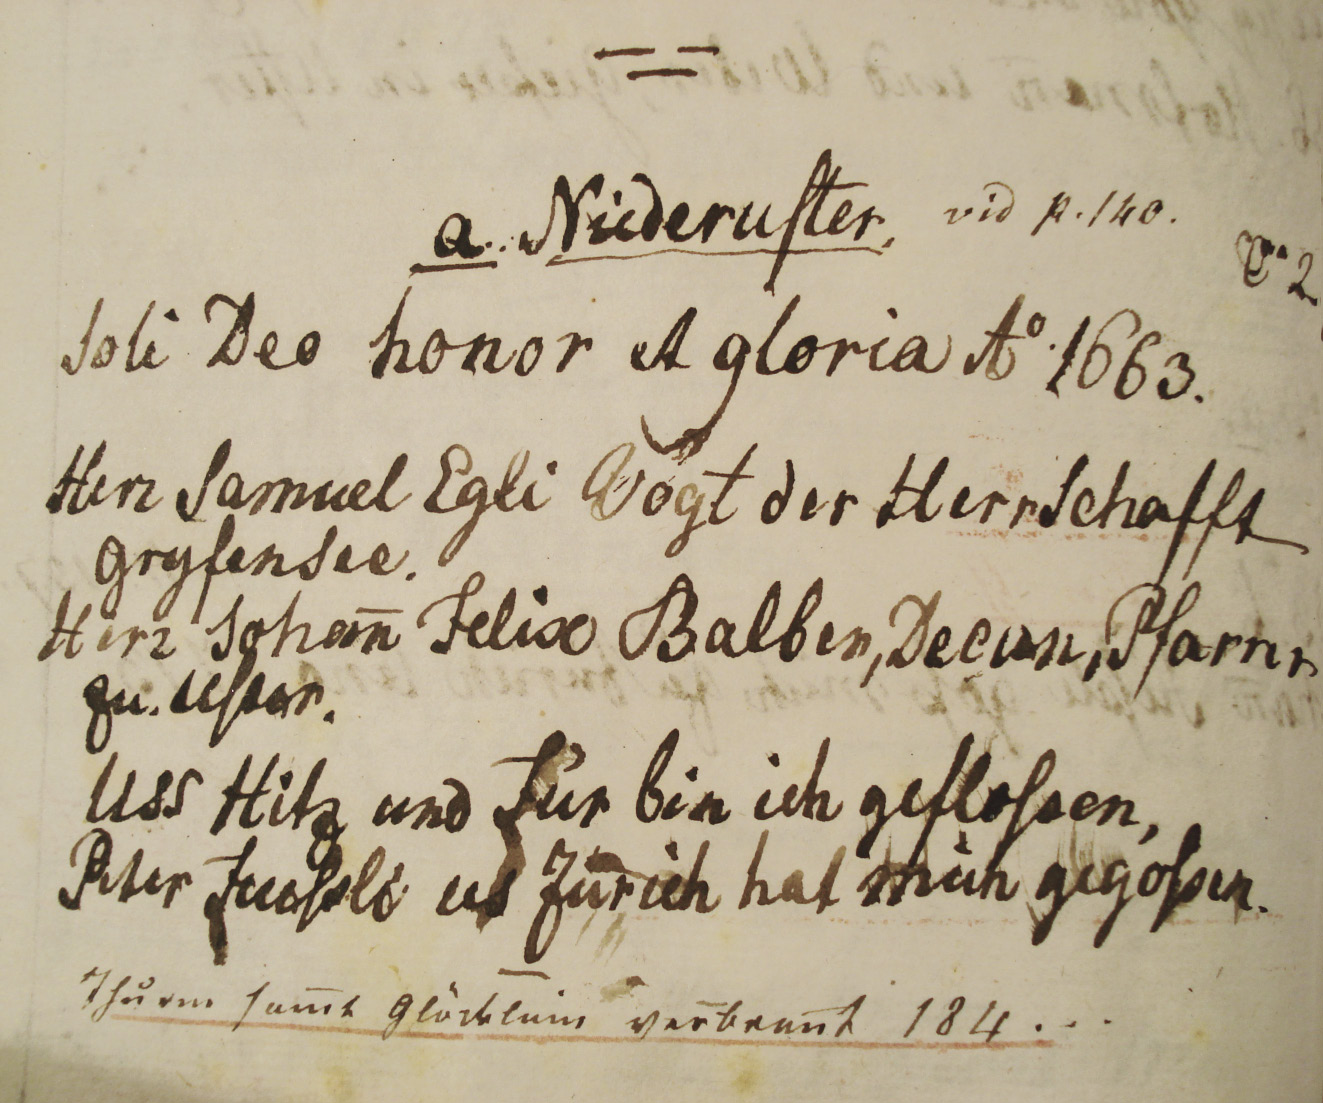 a. Niederuster, vid p. 140.
Soli Deo honor et gloria Aº. 1663.
Herr Samuel Egli Vogt der Herrschafft
Gryfensee.
Herr Johan̄ Felix Balber, Decan, Pfarrer
zu. Uster.
Uss Hitz und Für bin ich geflossen,
Peter Fuessli us Zürich hat mich gegossen.
Thurm sam̄t Glöcklein verbran̄t 184...